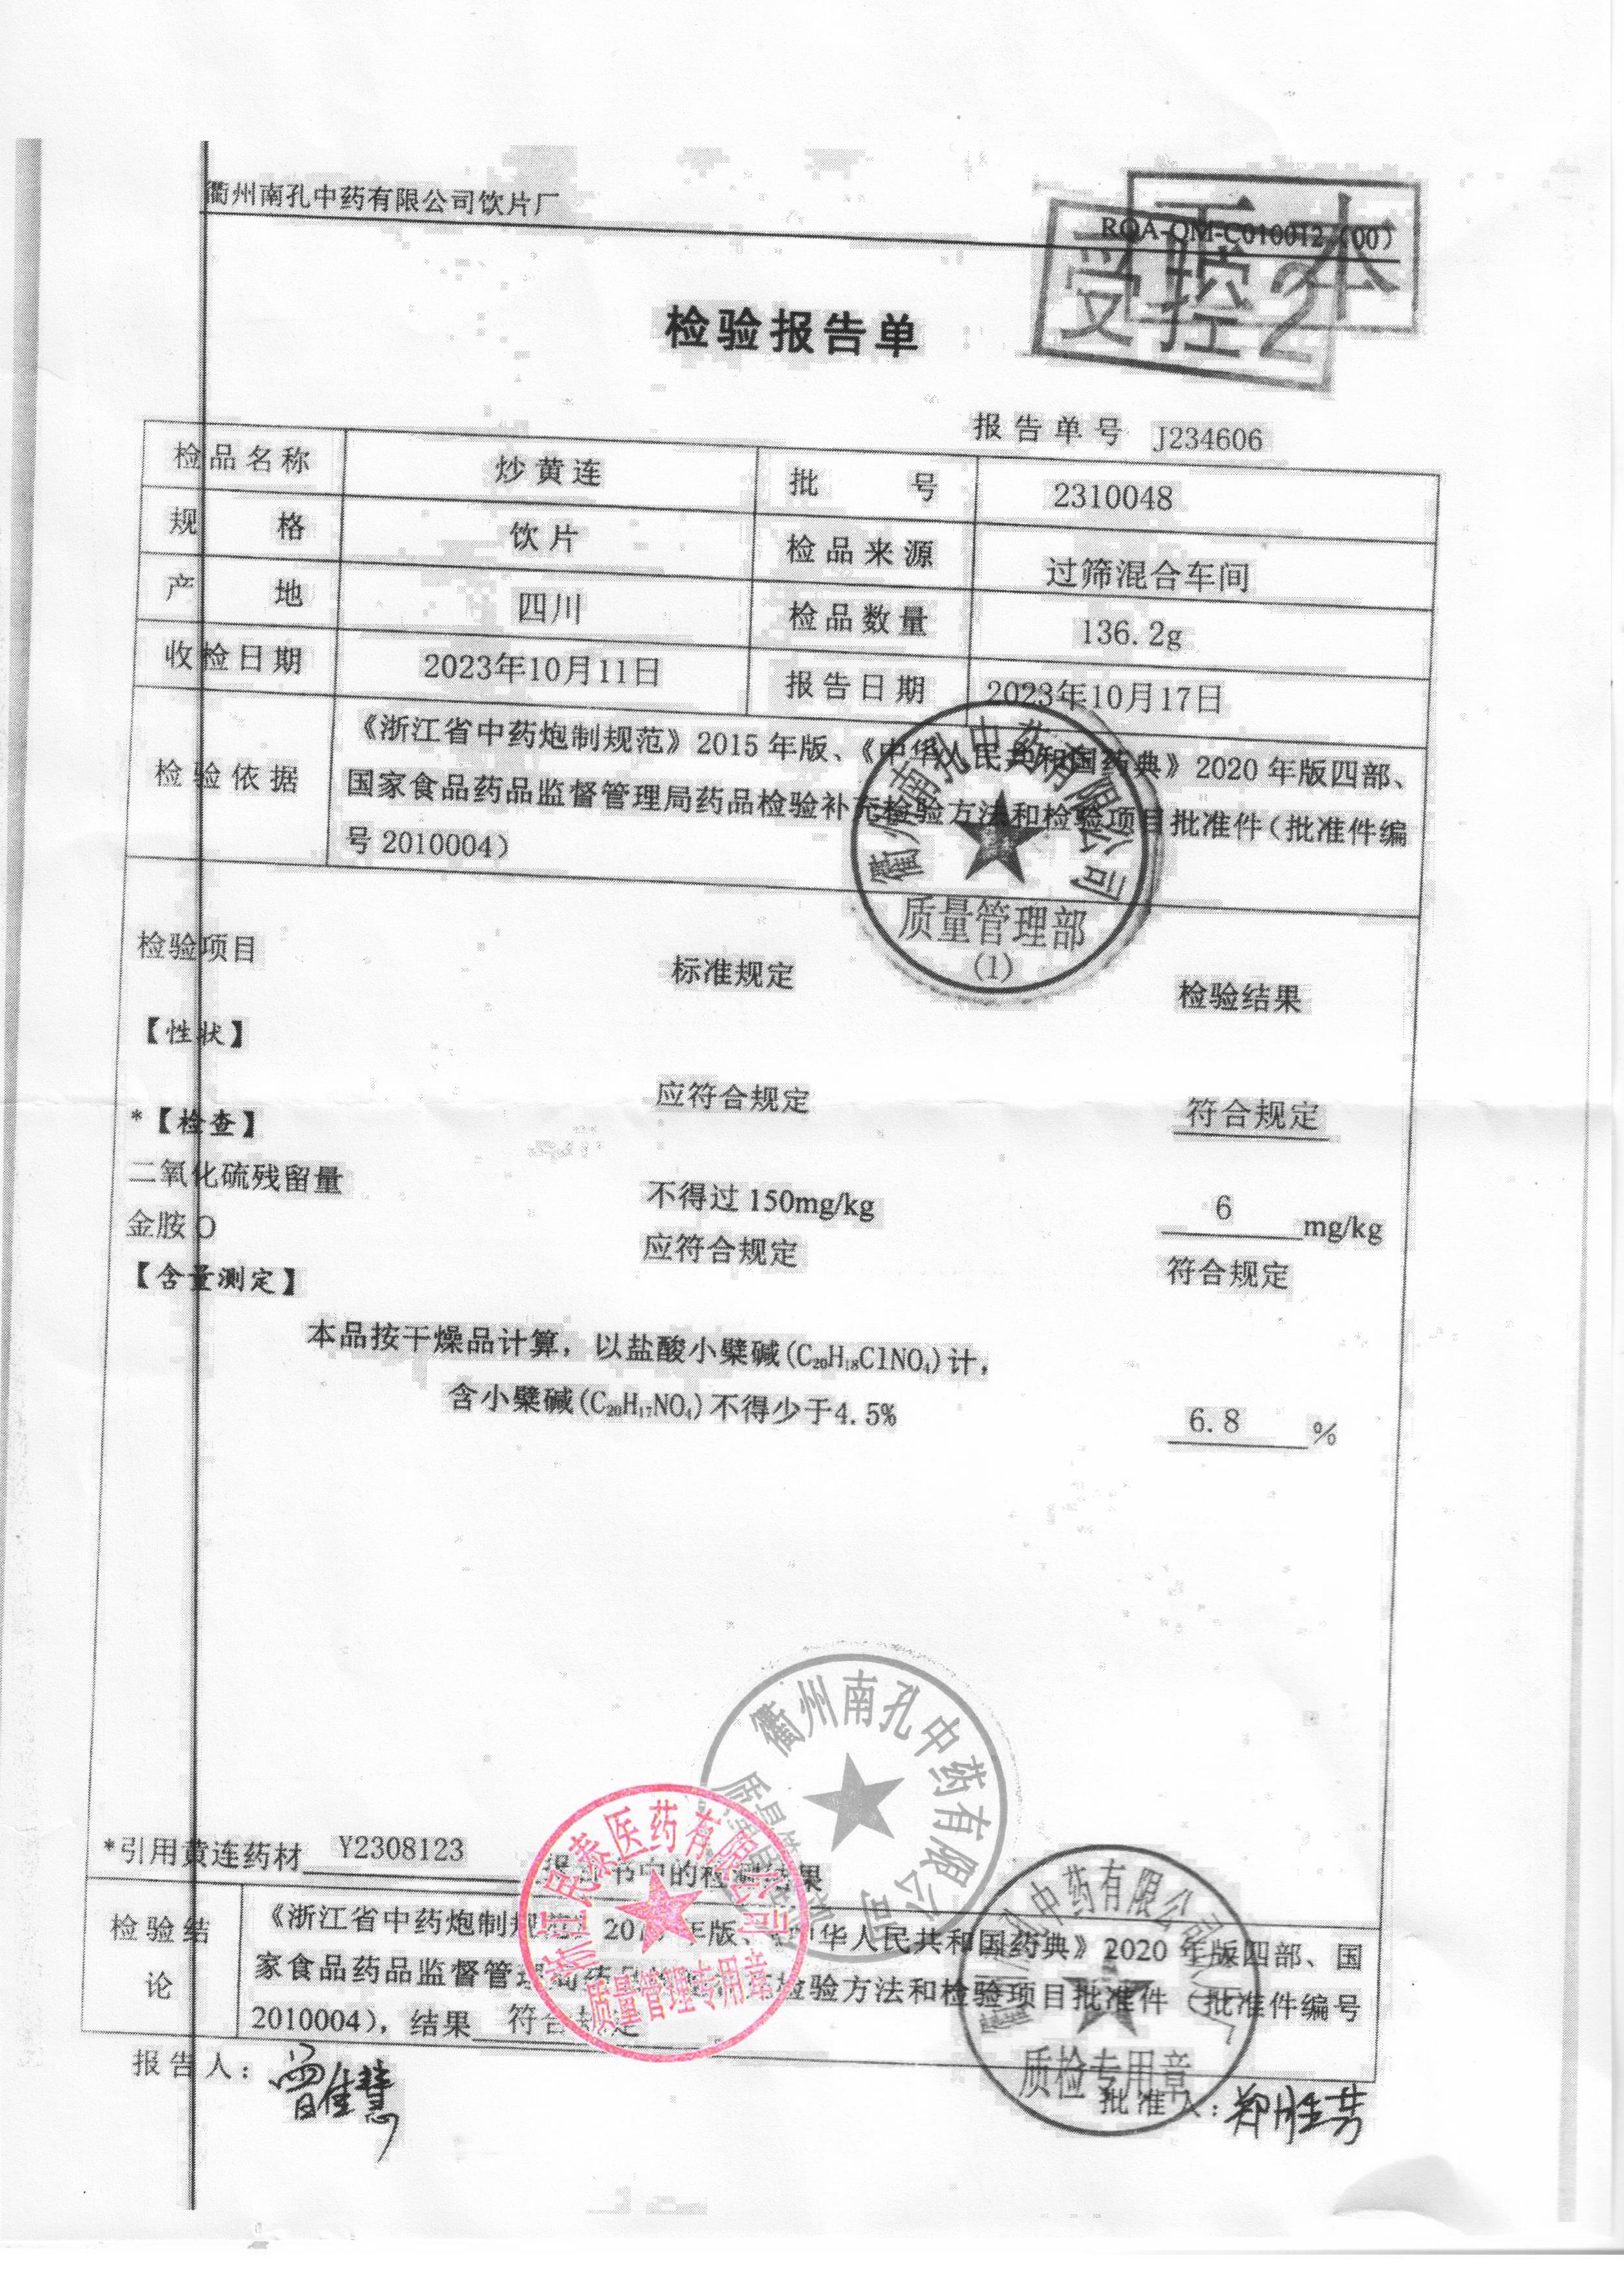 衢州南孔中药有限公司饮片厂
RQA-QM-C010012（00）
受控2
检验报告单
报告单号 J234606
检品名称 炒黄连 批号 2310048
规格 饮片 检品来源 过筛混合车间
产地 四川 检品数量 136.2g
收检日期 2023年10月11日 报告日期 2023年10月17日
检验依据 《浙江省中药炮制规范》2015年版、《中华人民共和国药典》2020年版四部、
国家食品药品监督管理局药品检验补充检验方法和检验项目批准件（批准件编
号2010004）
衢州南孔中药有限公司
质量管理部
(1)
检验项目 标准规定 检验结果
【性状】
应符合规定 符合规定
*【检查】
二氧化硫残留量 不得过150mg/kg 6 mg/kg
金胺O 应符合规定 符合规定
【含量测定】
本品按干燥品计算，以盐酸小檗碱(C₂₀H₁₈ClNO₄)计，
含小檗碱(C₂₀H₁₇NO₄)不得少于4.5% 6.8 %
衢州南孔中药有限公司
*引用黄连药材 Y2308123 中的检测结果
医药有限公司
质量管理专用章
检验结论 《浙江省中药炮制规范》2015年版、《中华人民共和国药典》2020年版四部、国
家食品药品监督管理局 检验方法和检验项目批准件（批准件编号
2010004），结果 符合规定
中药有限公司
质检专用章
报告人：曾佳慧
批准人：郑胜芳